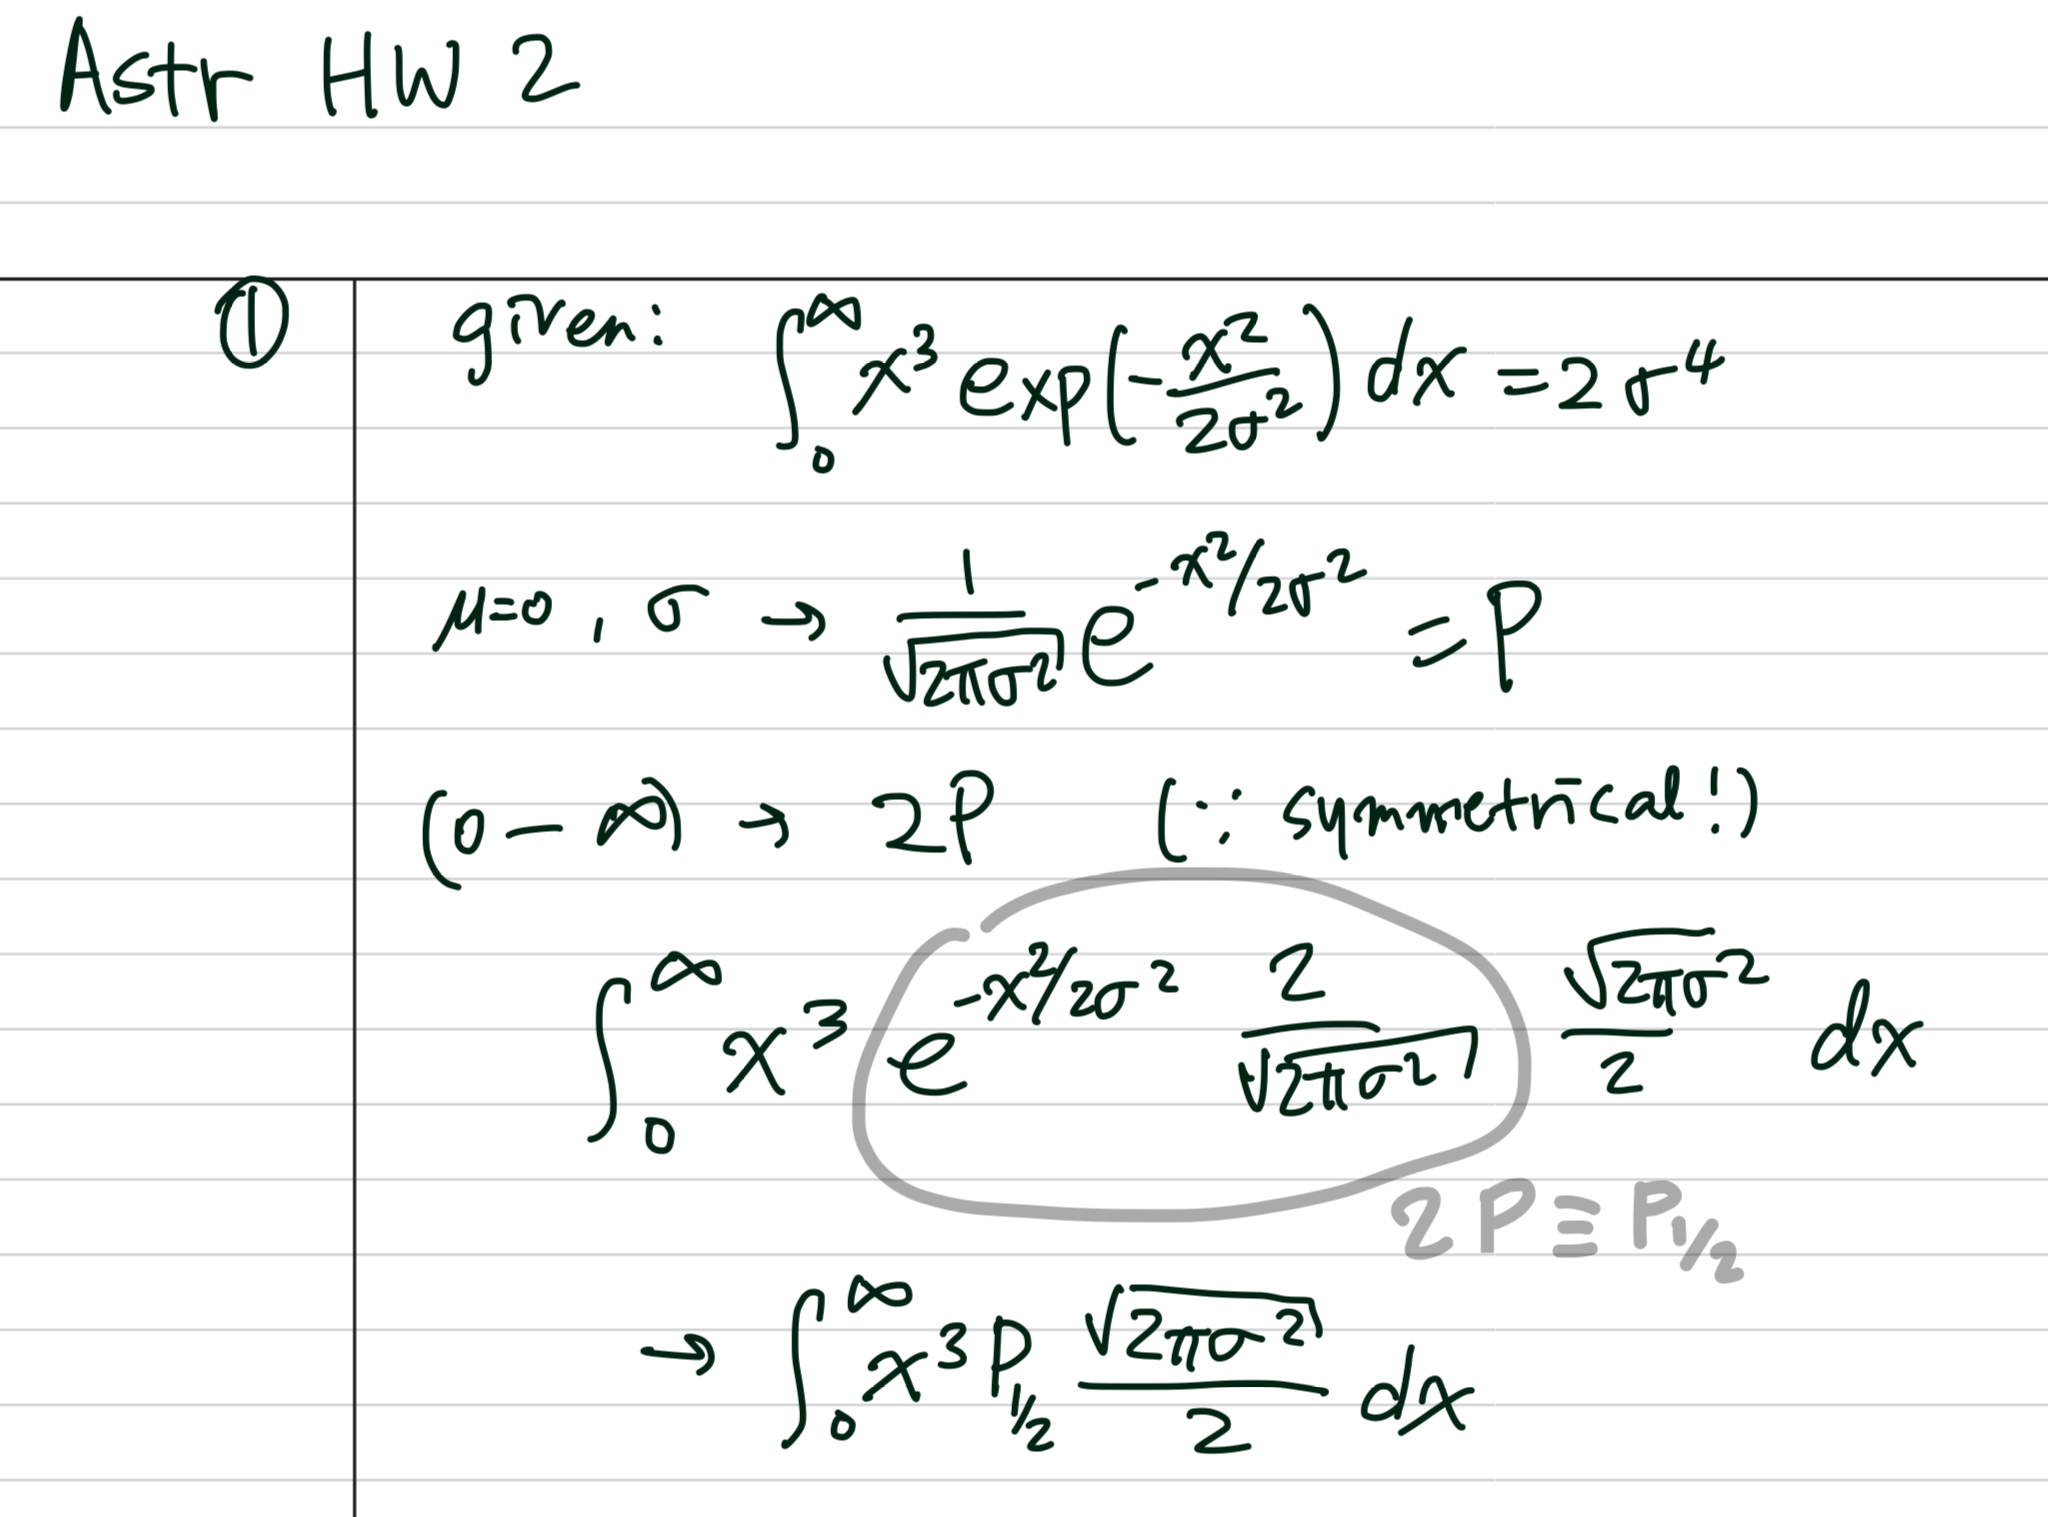 Astr HW 2
① given: ∫₀^∞ x³ exp(-x²/2σ²) dx = 2σ⁴
μ=0, σ → 1/√(2πσ²) e^(-x²/2σ²) = P
(0 − ∞) → 2P (∵ symmetrical!)
∫₀^∞ x³ e^(-x²/2σ²) 2/√(2πσ²) √(2πσ²)/2 dx
2P ≡ P_1/2
→ ∫₀^∞ x³ P_1/2 √(2πσ²)/2 dx